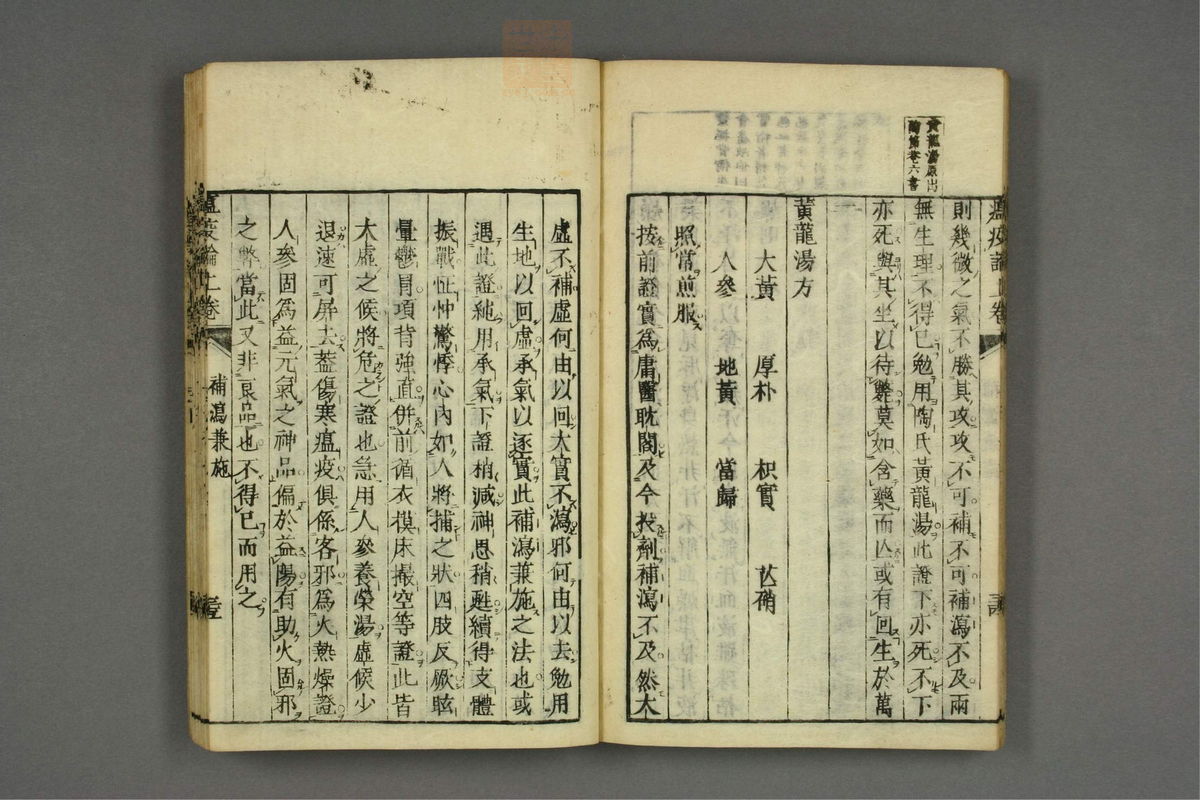 黃龍湯原出
陶節菴六書
瘟疫論上卷
則幾微之氣不勝其攻攻不可補不可補瀉不及兩
無生理不得已勉用陶氏黃龍湯此證下亦死不下
亦死與其坐以待斃莫如含藥而亾或有回生於萬
黃龍湯方
大黃　厚朴　枳實　芒硝
人參　地黃　當歸
照常煎服
按前證實為庸醫耽閣及今投劑補瀉不及然大
虛不補虛何由以回大實不瀉邪何由以去勉用
生地以回虛承氣以逐實此補瀉兼施之法也或
遇此證純用承氣下證稍減神思稍甦續得支體
振戰怔忡驚悸心內如人將捕之狀四肢反厥眩
暈鬱冒項背強直併前循衣摸床撮空等證此皆
大虛之候將危之證也急用人參養榮湯虛候少
退速可屏去蓋傷寒瘟疫俱係客邪為火熱燥證
人參固為益元氣之神品偏於益陽有助火固邪
之弊當此又非良品也不得已而用之
瘟疫論上卷
補瀉兼施